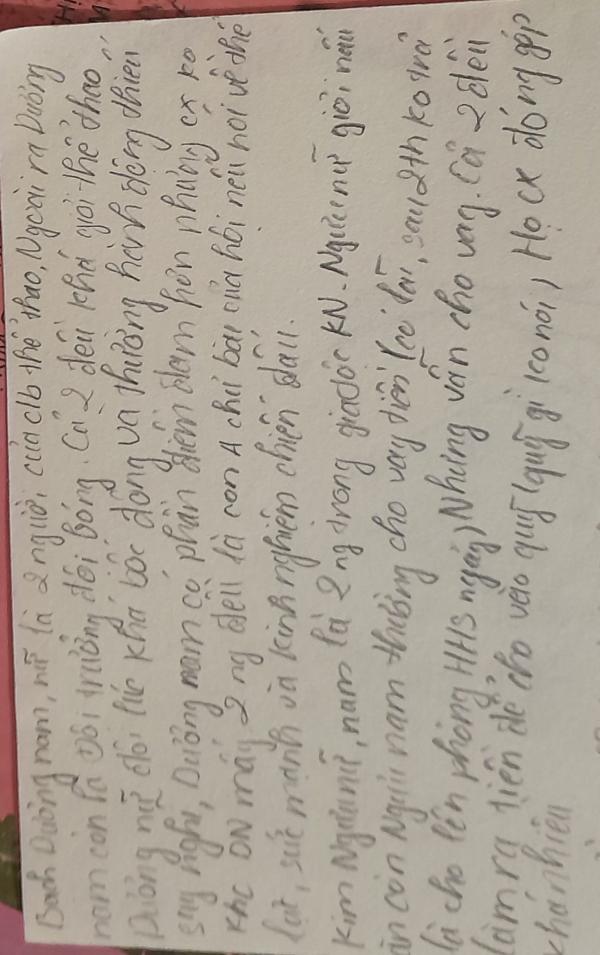 Bạch Dương nam, nữ là 2 người của clb thể thao, Ngoài ra Dương
nam còn là đội trưởng đội bóng. Cả 2 đều khá giỏi thể thao,
Dương nữ đôi lúc khá bốc đồng và thường hành động thiếu
suy nghĩ, Dương nam có phần điềm đạm hơn nhưng cx ko
khc DN mấy, 2 ng đều là con A chủ bài của hội nếu nói về thể
lực, sức mạnh và kinh nghiệm chiến đấu.
Kim Ngưu nữ, nam là 2 ng trong gia tộc KN. Ngưu nữ giỏi nấu
ăn còn Ngưu nam thường cho vay tiền (có lãi, sau 2th ko trả
là cho lên phòng HHS ngay) Nhưng vẫn cho vay. Cả 2 đều
làm ra tiền để cho vào quỹ (quỹ gì ko nói), Họ cx đóng góp
khá nhiều